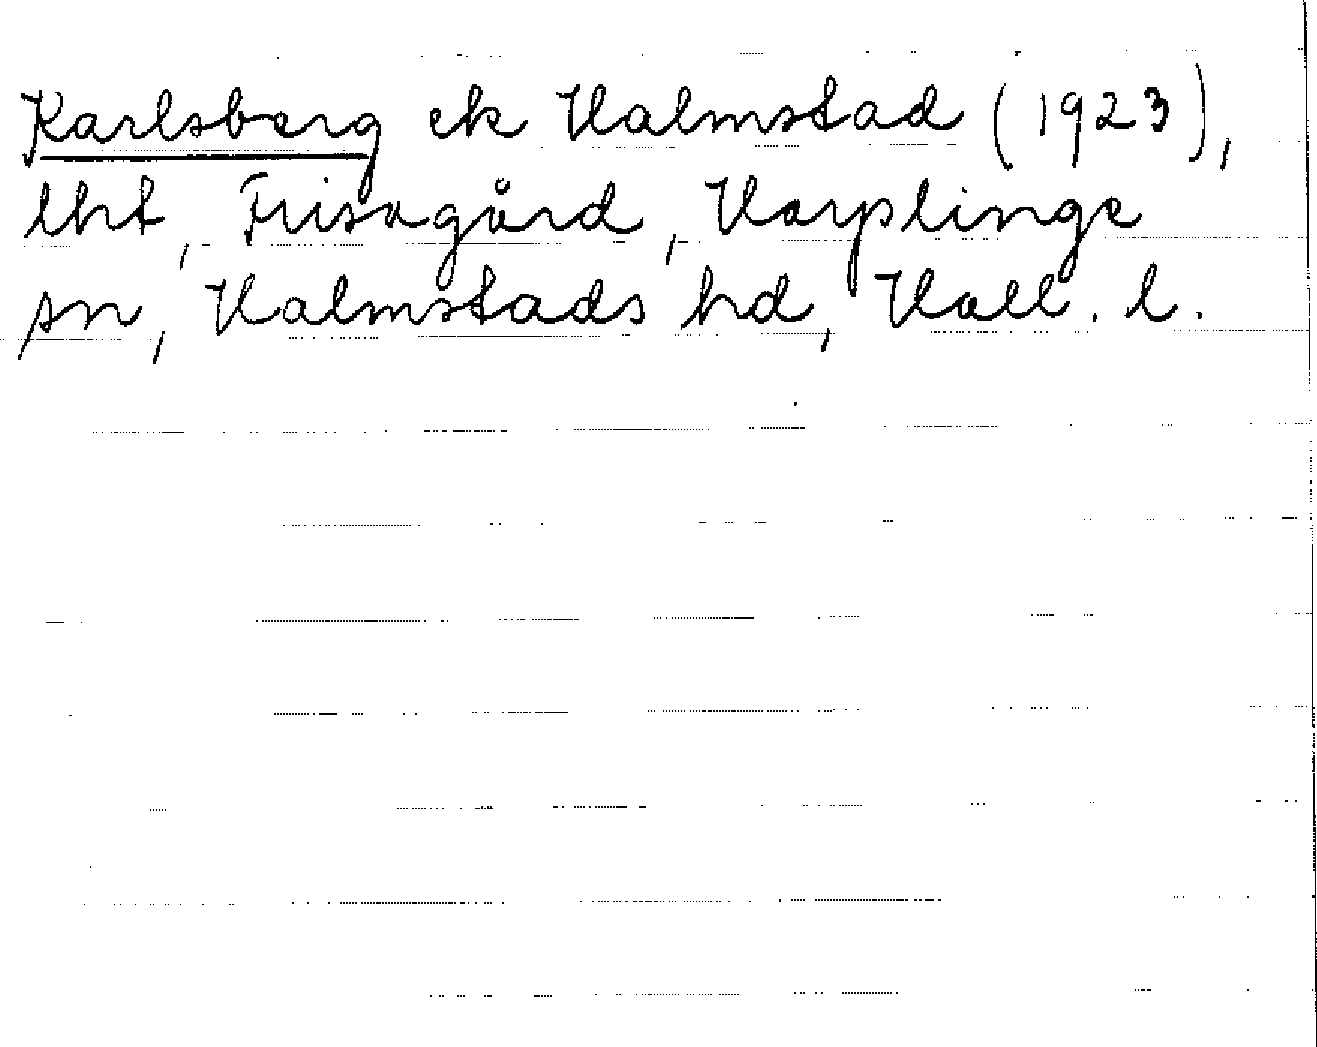 Karlsberg ek Halmstad (1923),
lht, Frisagård, Harplinge
sn, Halmstads hd, Hall. l.